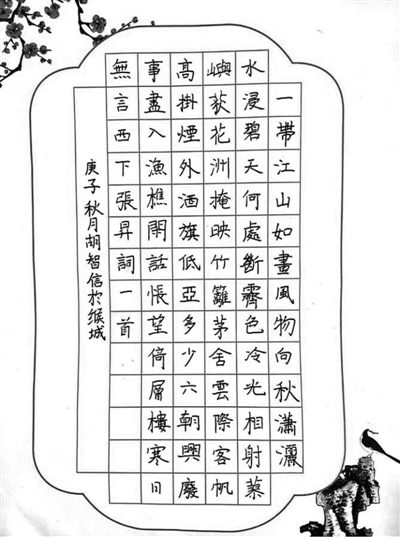 一帶江山如畫風物向秋瀟灑
水浸碧天何處斷霽色冷光相射蓼
嶼荻花洲掩映竹籬茅舍雲際客帆
高掛煙外酒旗低亞多少六朝興廢
事盡入漁樵閑話悵望倚層樓寒日
無言西下張昇詞一首
庚子秋月胡智信於缑城